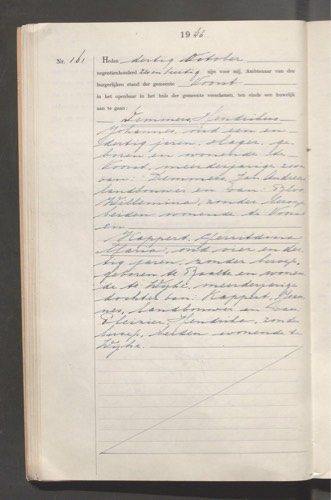 19
Nr. 161 Heden dertig October
negentienhonderd zijn voor mij, Ambtenaar van den
burgerlijken stand der gemeente Voorst
in het openbaar in het huis der gemeente verschenen, ten einde een huwelijk
aan te gaan:
Hendrikus
Johannes, oud een en
dertig jaren, slager, ge-
boren en wonende te
Voorst, meerderjarige zoon
van: Jan Andries
landbouwer en van:
Willemina, zonder beroep
beiden wonende te Voorst
en
Kappert, Berendina
Maria, oud drie en der-
tig jaren, zonder beroep,
geboren te Raalte en wonen-
de te Wijhe, meerderjarige
dochter van: Kappert,
landbouwer en van
Hendrika, zonder
beroep, beiden wonende te
Wijhe.